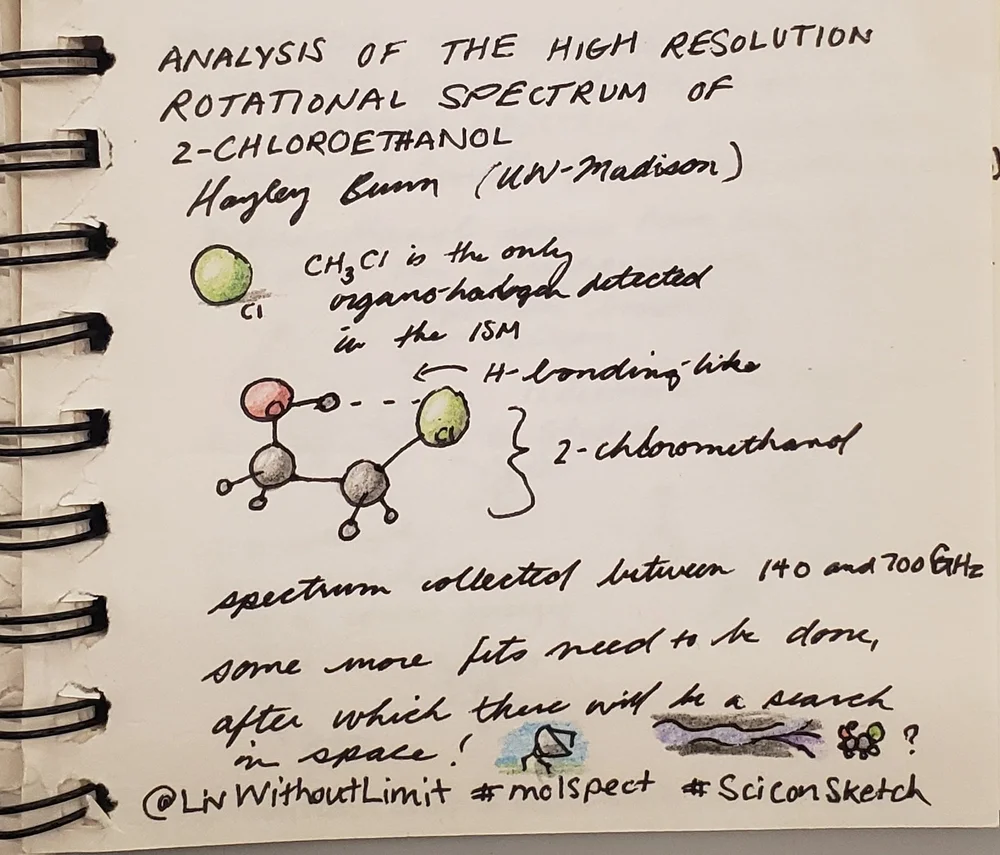 ANALYSIS OF THE HIGH RESOLUTION
ROTATIONAL SPECTRUM OF
2-CHLOROETHANOL
Hayley Bunn (UW-Madison)
CH3Cl is the only
organo-halogen detected
Cl
in the ISM
← H-bonding-like
Cl
2-chloromethanol
spectrum collected between 140 and 700 GHz
some more fits need to be done,
after which there will be a search
in space! ?
@LivWithoutLimit #molspect #SciConSketch